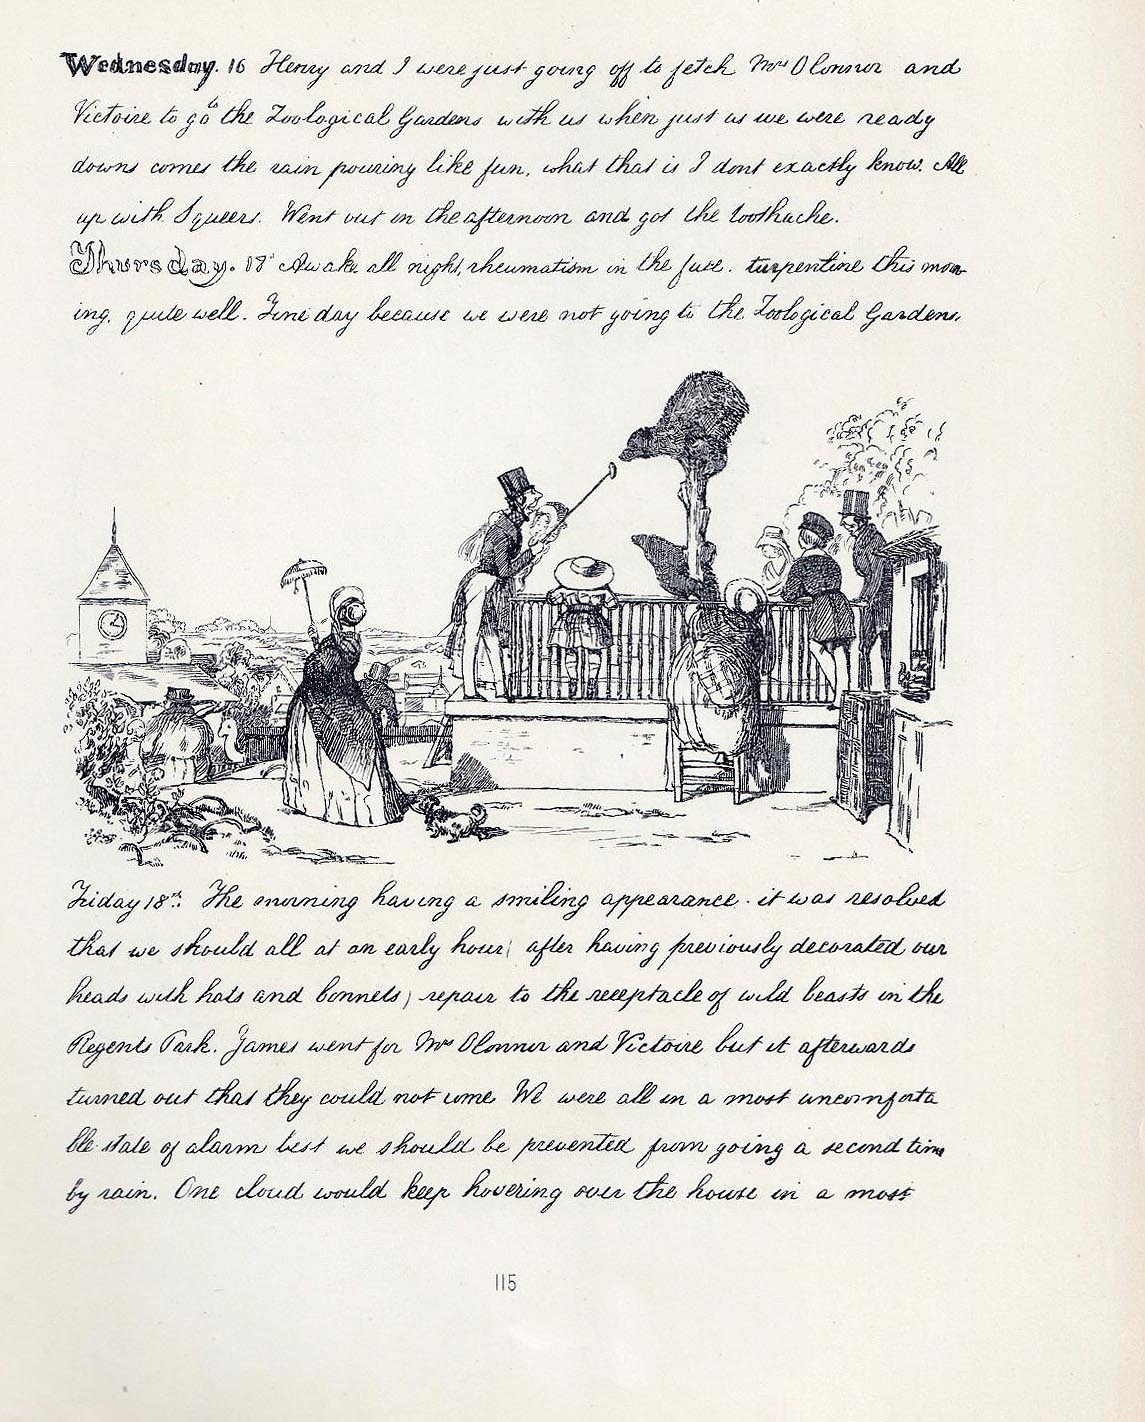 Wednesday. 16 Henry and I were just going off to fetch Mrs O Connor and
Victoire to go to the Zoological Gardens with us when just as we were ready
downs comes the rain pouring like fun, what that is I dont exactly know. All
up with Squeers. Went out in the afternoon and got the toothache.
Thursday. 17th Awake all night, rheumatism in the face. turpentine this morn
ing, quite well. Fine day because we were not going to the Zoological Gardens.
Friday 18th. The morning having a smiling appearance. it was resolved
that we should all at an early hour( after having previously decorated our
heads with hats and bonnets) repair to the receptacle of wild beasts in the
Regents Park. James went for Mrs OConnor and Victoire but it afterwards
turned out that they could not come We were all in a most uncomforta
ble state of alarm lest we should be prevented from going a second time
by rain. One cloud would keep hovering over the house in a most
115